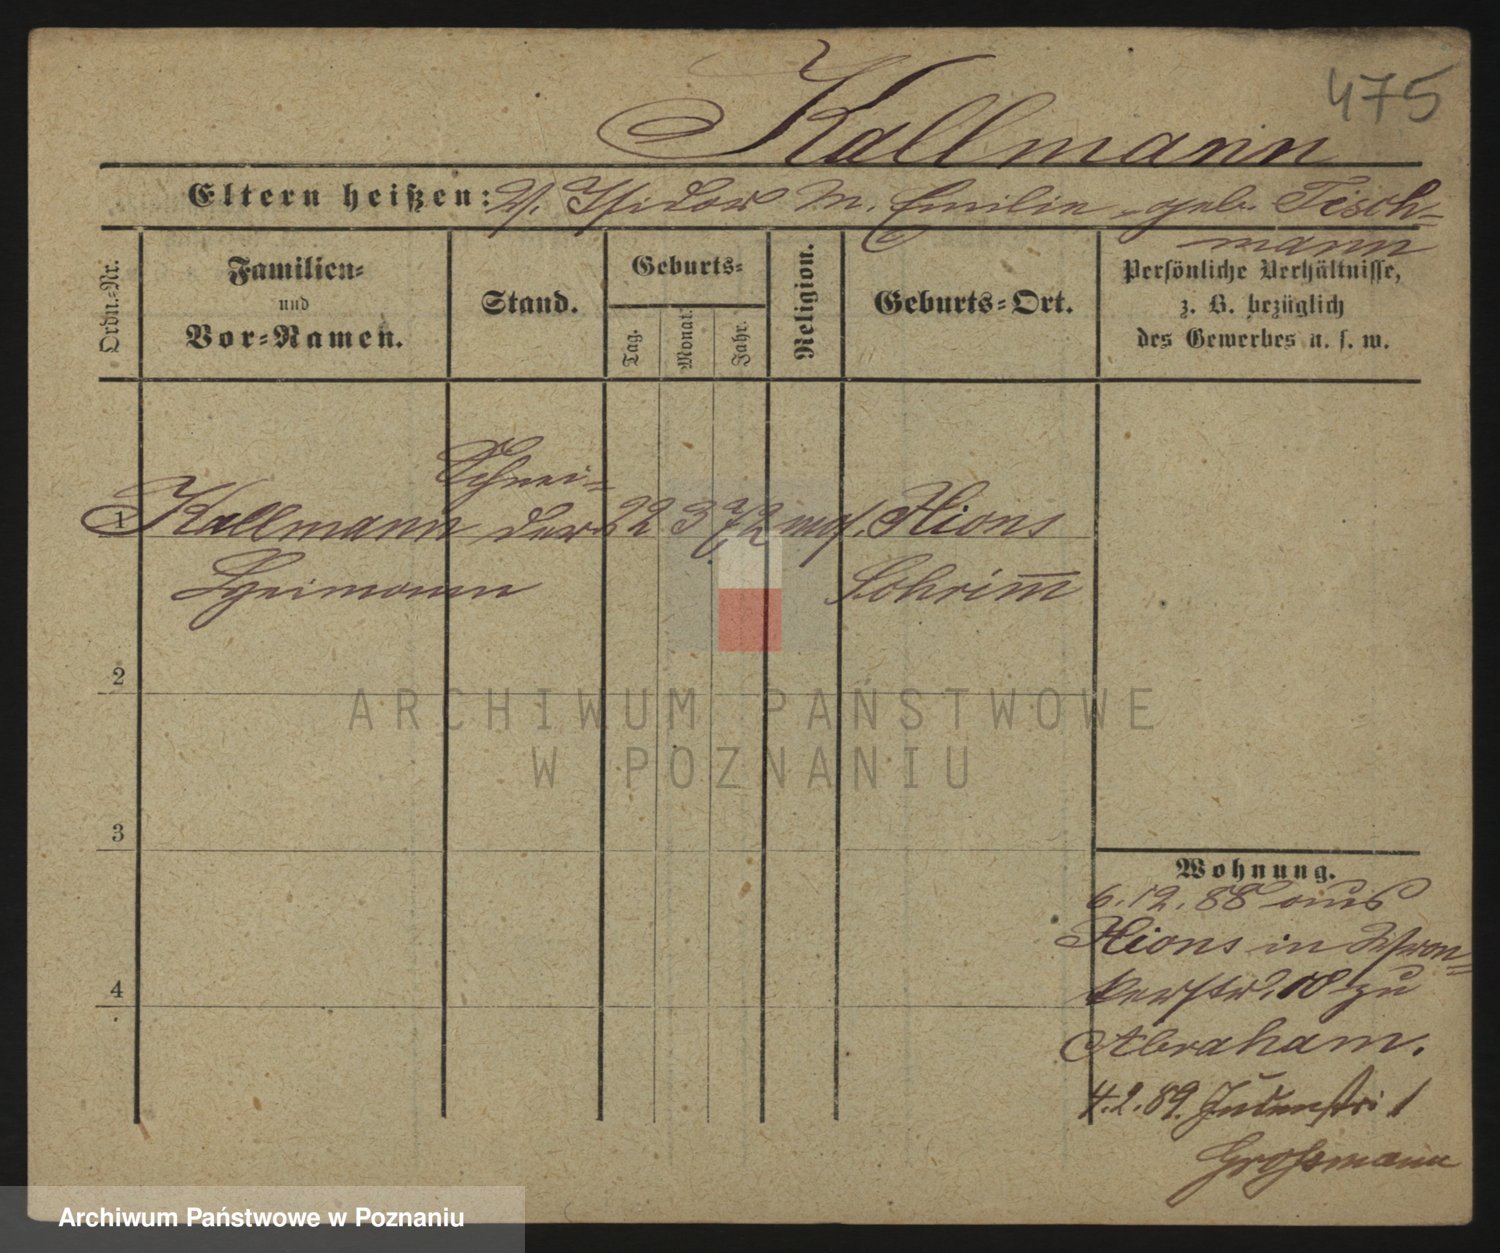 475
Kallmann
Eltern heißen: V. Isidor M. Emilie geb. Tisch=
mann
Ordn.-Nr.
Familien=
und
Vor=Namen.
Stand.
Geburts=
Tag.
Monat.
Jahr.
Religion.
Geburts=Ort.
Persönliche Verhältnisse,
z. B. bezüglich
des Gewerbes u. s. w.
Schnei=
1 Kallmann der 22 3 72 mos. Xions
Schrimm
2
3
4
Wohnung.
6.12.88 aus
Xions in Wron=
kerstr. 18 zu
Abraham.
4.2.89. Judenstr. 1
Grossmann
ARCHIWUM PAŃSTWOWE
W POZNANIU
Archiwum Państwowe w Poznaniu